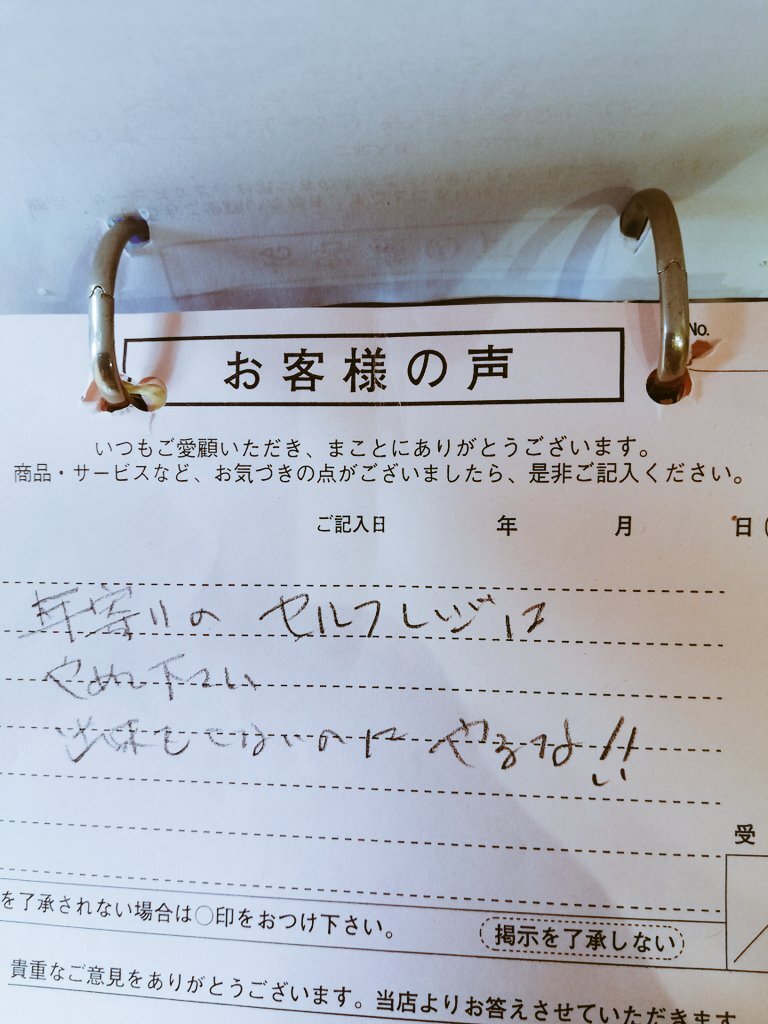 No.
お客様の声
いつもご愛顧いただき、まことにありがとうございます。
商品・サービスなど、お気づきの点がございましたら、是非ご記入ください。
ご記入日 年 月 日(
年寄りの セルフレジは
やめて下さい
出来もしないのに やるな!!
受
を了承されない場合は○印をおつけ下さい。
掲示を了承しない
貴重なご意見をありがとうございます。当店よりお答えさせていただきます